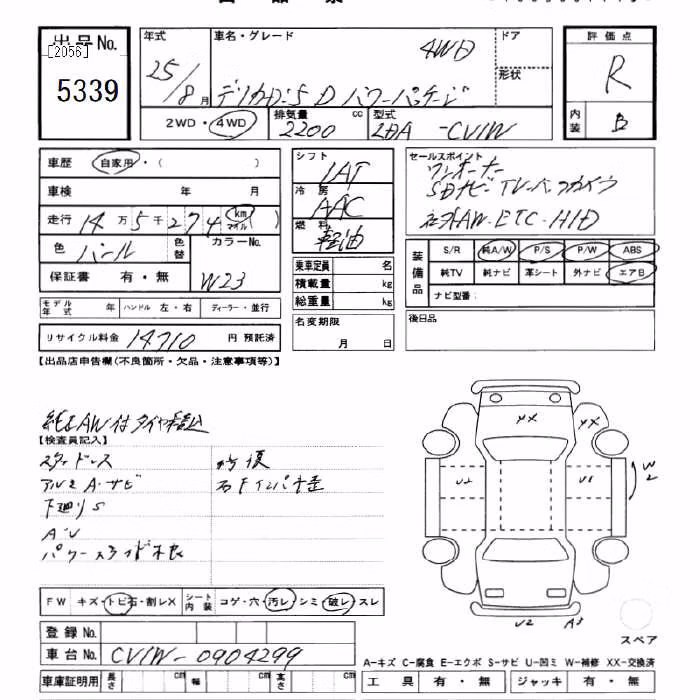 出品No.
[2056]
5339
年式
25/8月
車名・グレード
4WD
デリカD:5 D パワーパッケージ
ドア
形状
評価点
R
内装
B
2WD・4WD
排気量 cc
2200
型式
LDA -CV1W
車歴 自家用・( )
車検 年 月
走行 14万5千274 km マイル ( )
色 パール 色替 カラーNo.
保証書 有・無 W23
モデル年式 年 ハンドル 左・右 ディーラー・並行
リサイクル料金 14710 円 預託済
シフト
IAT
冷房
AAC
燃料
軽油
乗車定員 名
積載量 kg
総重量 kg
名変期限
月 日
セールスポイント
ワンオーナー
SDナビ TV・バックカメラ
社外AW・ETC・HID
装備品
S/R 純A/W P/S P/W ABS
純TV 純ナビ 革シート 外ナビ エアB
ナビ型番:
後日品
【出品店申告欄(不良箇所・欠品・注意事項等)】
純正AW付タイヤ積込
【検査員記入】
アルミA・サビ
下廻りS
A・U
パワースライド不良
修復
右Fインパネ歪
FW キズ・トビ石・割レX シート内装 コゲ・穴・汚レ・シミ・破レ・スレ
登録No.
車台No. CV1W-0904299
車庫証明用 長さ cm 幅 cm 高さ cm
XX XX
U2 U1 W2
U2 A3
スペア
A-キズ C-腐食 E-エクボ S-サビ U-凹ミ W-補修 XX-交換済
工具 有・無 ジャッキ 有・無